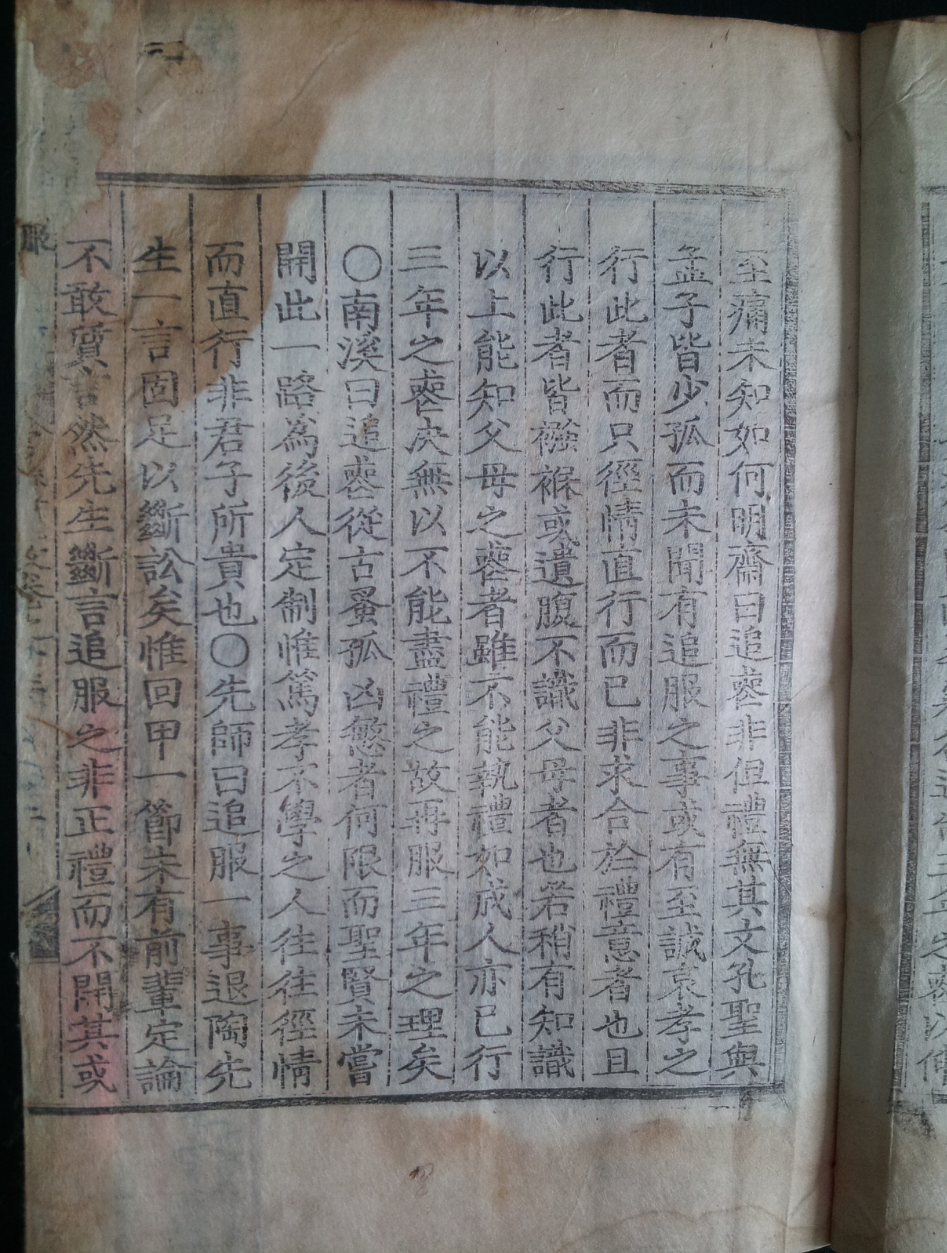 至痛未知如何明齋曰追䘮非但禮無其文孔聖與
孟子皆少孤而未聞有追服之事或有至誠哀孝之
行此者而只徑情直行而已非求合於禮意者也且
行此者皆襁褓或遺腹不識父母者也若稍有知識
以上能知父母之䘮者雖不能執禮如成人亦已行
三年之䘮决無以不能盡禮之故再服三年之理矣
○南溪曰追䘮從古蚤孤凶慜者何限而聖賢未嘗
開此一路爲後人定制惟篤孝不學之人往往徑情
而直行非君子所貴也○先師曰追服一事退陶先
生一言固足以斷訟矣惟回甲一節未有前輩定論
不敢質言然先生斷言追服之非正禮而不開其或
服